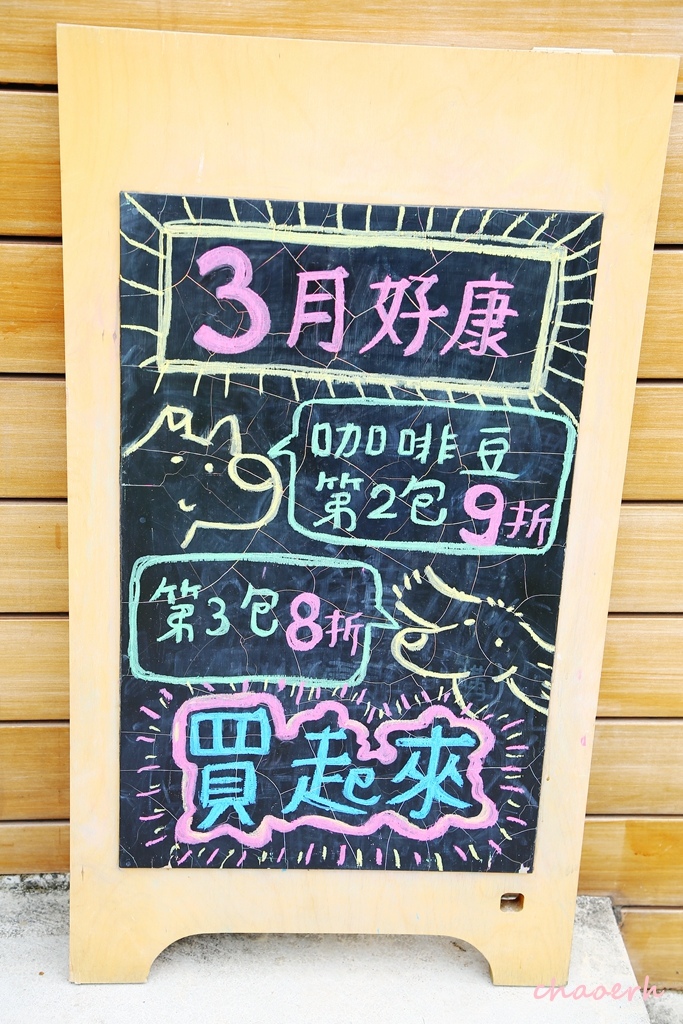 3月好康
咖啡豆
第2包9折
第3包8折
買起來
chaoerh